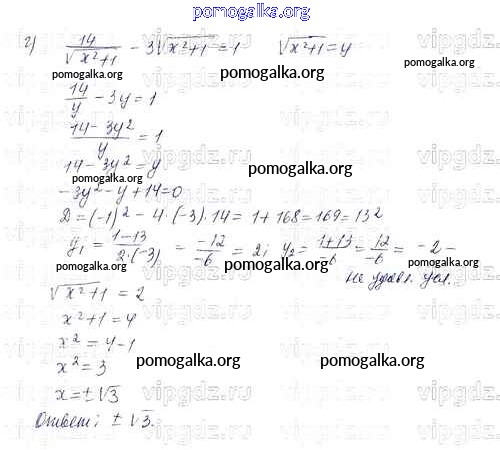 pomogalka.org
г) 14/√(x²+1) - 3√(x²+1) = 1 √(x²+1) = y
pomogalka.org pomogalka.org pomogalka.org
14/y - 3y = 1
(14 - 3y²)/y = 1
14 - 3y² = y
pomogalka.org pomogalka.org
-3y² - y + 14 = 0
D = (-1)² - 4·(-3)·14 = 1 + 168 = 169 = 13²
y₁ = (1-13)/(2·(-3)) = -12/-6 = 2; y₂ = (1+13)/-6 = 12/-6 = -2 -
pomogalka.org pomogalka.org pomogalka.org
не удовл. усл.
√(x²+1) = 2
x²+1 = 4
x² = 4-1
x² = 3
pomogalka.org pomogalka.org
x = ±√3
Ответ: ±√3.
vipgdz.ru